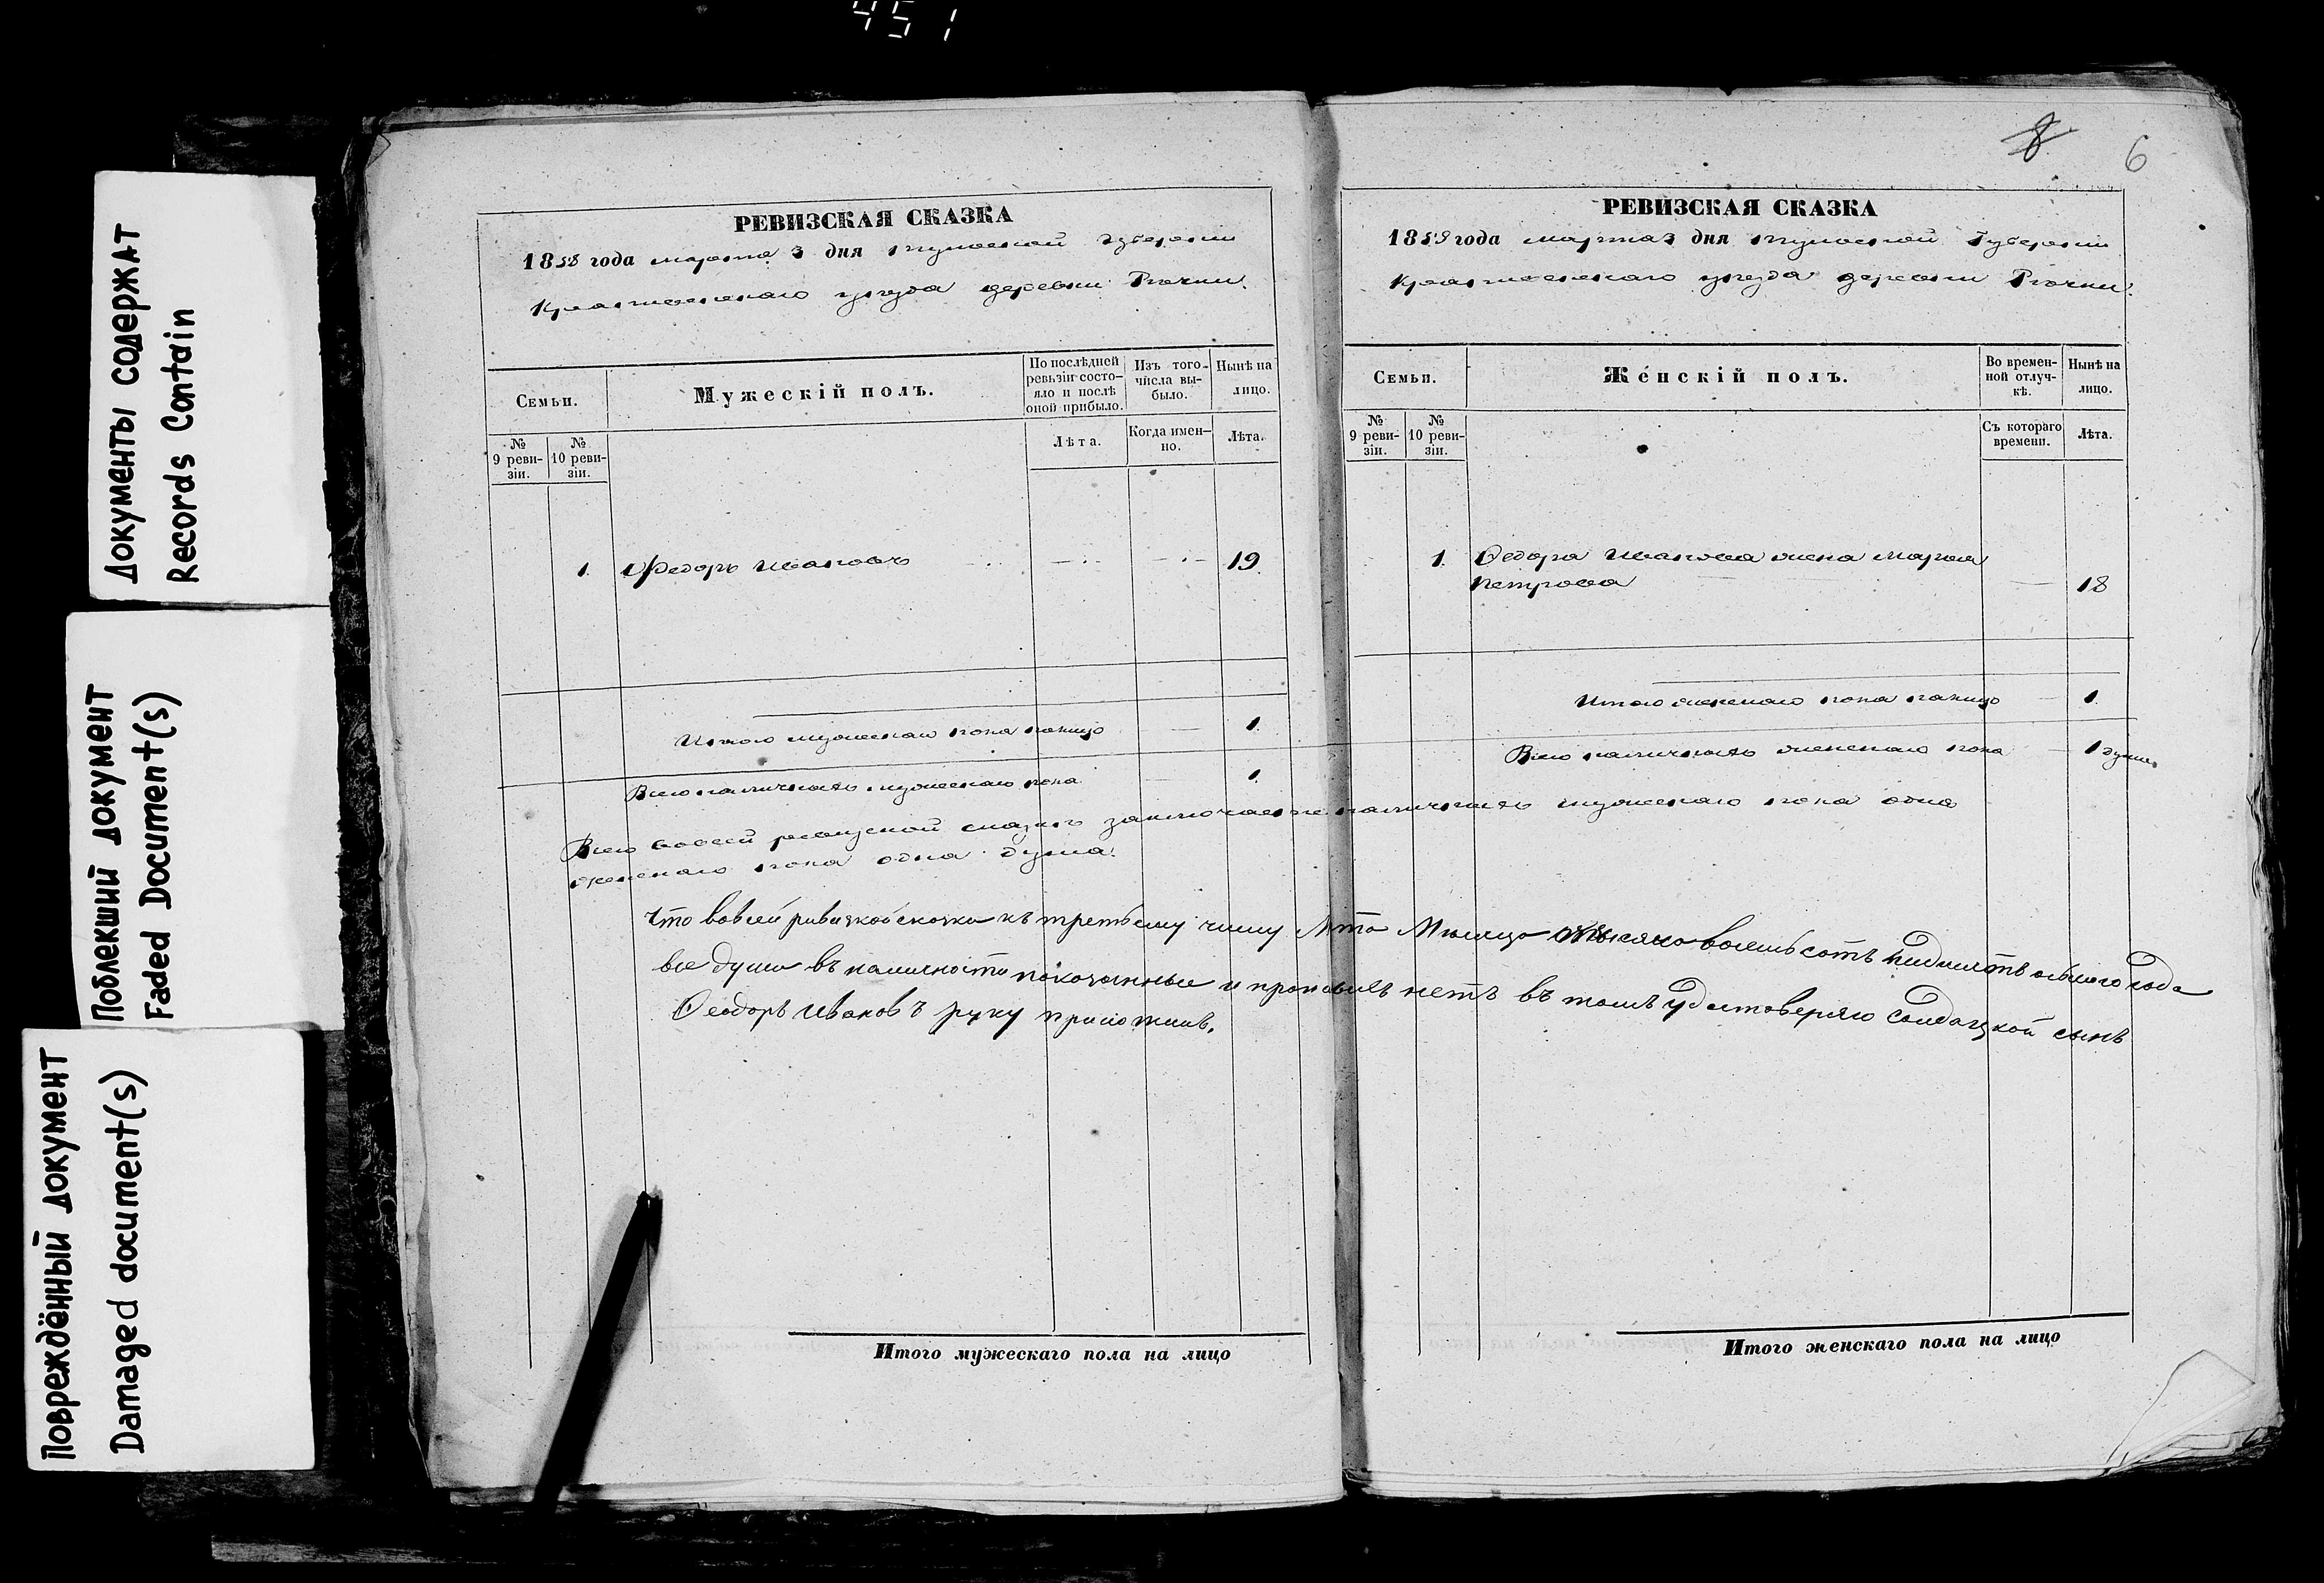 451
Документы содержат
Records Contain
Поблекший документ
Faded Document(s)
Повреждённый документ
Damaged document(s)
РЕВИЗСКАЯ СКАЗКА
1858 года марта 3 дня тульской губернии
Крапивенскаго уезда деревни
Семьи.
Мужескій полъ.
По послѣдней ревизіи состо-яло и послѣ оной прибыло.
Изъ того числа вы-было.
Нынѣ на лицо.
№ 9 реви-зіи.
№ 10 реви-зіи.
Лѣта.
Когда имен-но.
Лѣта.
1. Федоръ Ивановъ 19
Итого мужескаго пола налицо 1.
Всего наличныхъ мужескаго пола 1.
8 6
РЕВИЗСКАЯ СКАЗКА
1858 года марта 3 дня тульской Губернии
Крапивенскаго уезда деревни
Семьи.
Женскій полъ.
Во времен-ной отлуч-кѣ.
Нынѣ на лицо.
№ 9 реви-зіи.
№ 10 реви-зіи.
Съ котораго времени.
Лѣта.
1. Федора Иванова жена Марья
Петрова 18
Итого женскаго пола налицо 1.
Всего наличныхъ женскаго пола 1 душа.
Всего въ сей ревизской сказкѣ заключается наличныхъ мужескаго пола одна
женскаго пола одна душа.
Что вовсей ревизкой сказки къ третьему числу Марта восемьсотъ года
все души въ наличности показанные и нетъ въ томъ удостоверяю Солдацкой сынъ
Феодоръ Ивановъ руку приложилъ.
Итого мужескаго пола на лицо
Итого женскаго пола на лицо